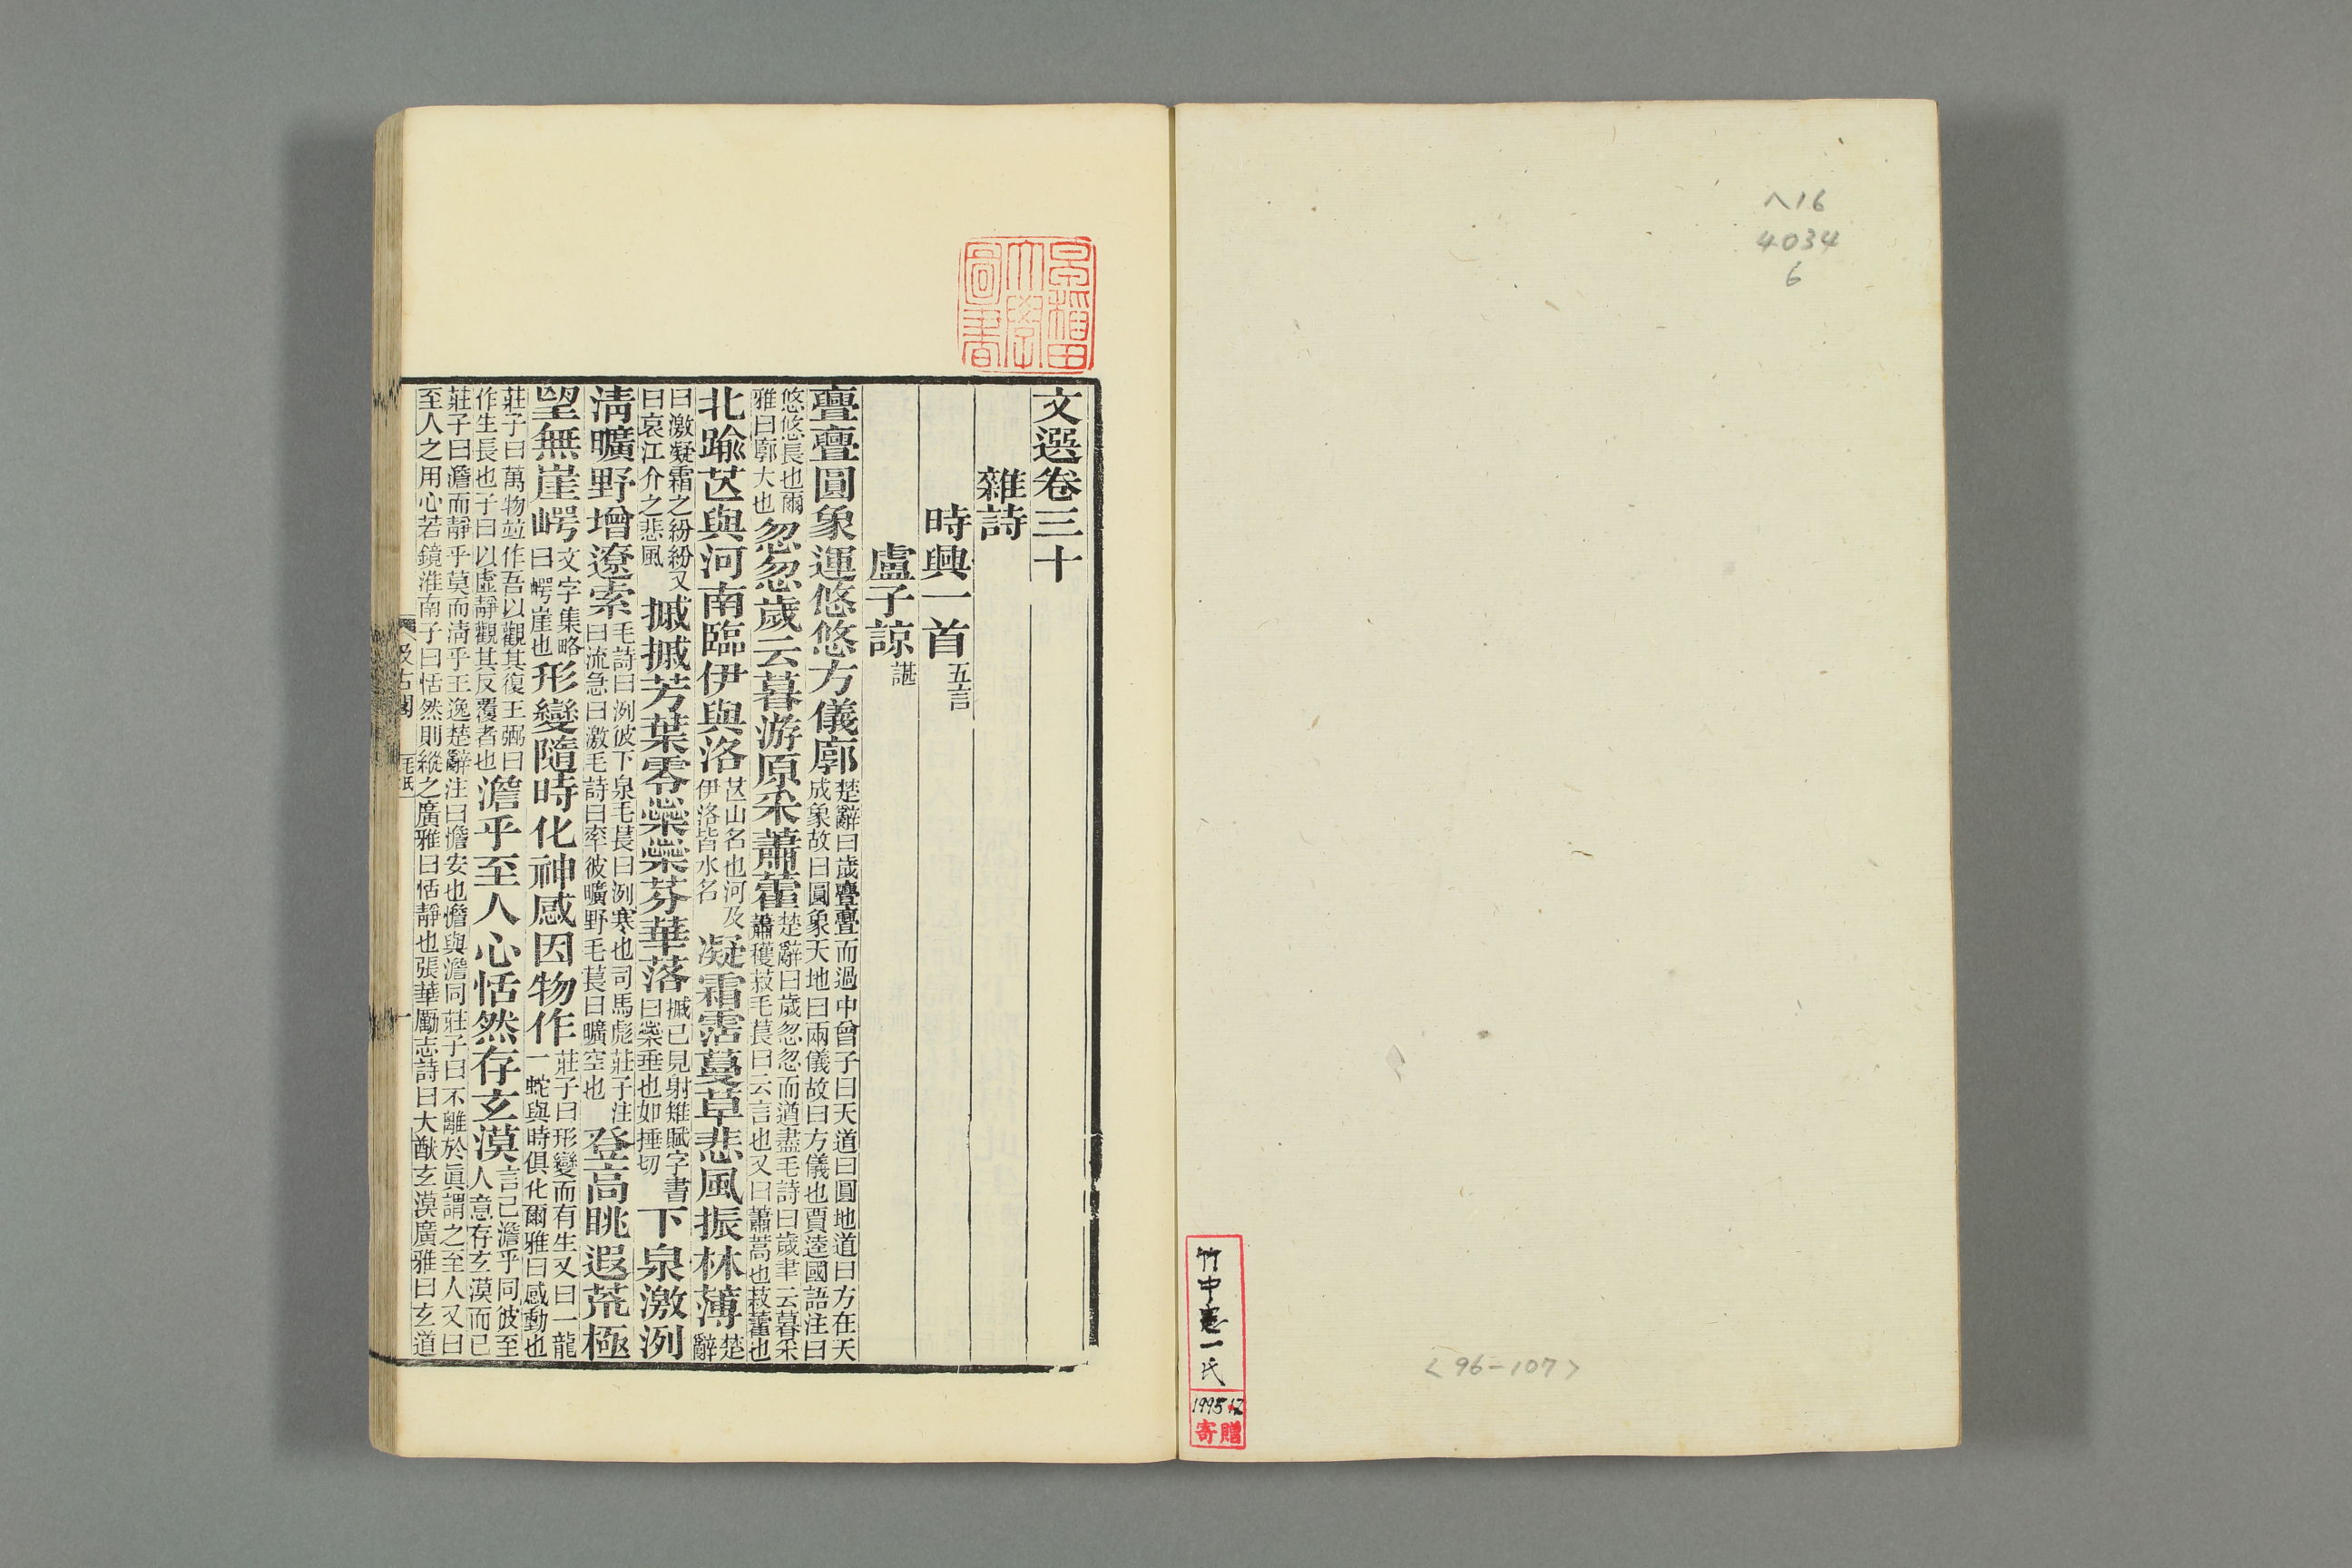 ヘ16
4034
6
<96-107>
竹中憲一氏
1995.12
寄贈
早稲田
大學
圖書
文選卷三十
雜詩
時興一首五言
盧子諒諶
亹亹圓象運悠悠方儀廓楚辭曰歲亹亹而過中曾子曰天道曰圓地道曰方在天成象故曰圓象天地曰兩儀故曰方儀也賈逵國語注曰
悠悠長也爾雅曰廓大也忽忽歲云暮游原采蕭藿楚辭曰歲忽忽而遒盡毛詩曰歲聿云暮采蕭穫菽毛萇曰云言也又曰蕭蒿也菽藿也
北踰芒與河南臨伊與洛芒山名也河及伊洛皆水名凝霜霑蔓草悲風振林薄楚辭
曰激凝霜之紛紛又曰哀江介之悲風摵摵芳葉零橤橤芬華落摵已見射雉賦字書曰橤垂也如捶切下泉激洌
清曠野增遼索毛詩曰洌彼下泉毛萇曰洌寒也司馬彪莊子注曰流急曰激毛詩曰率彼曠野毛萇曰曠空也登高眺遐荒極
望無崖崿文字集略曰崿崖也形變隨時化神感因物作莊子曰形變而有生又曰一龍一蛇與時俱化爾雅曰感動也
莊子曰萬物並作吾以觀其復王弼曰作生長也子曰以虛靜觀其反覆者也澹乎至人心恬然存玄漠言己澹乎同彼至人意存玄漠而已
莊子曰澹而靜乎莫而清乎王逸楚辭注曰憺安也憺與澹同莊子曰不離於眞謂之至人又曰至人之用心若鏡淮南子曰恬然則縱之廣雅曰恬靜也張華勵志詩曰大猷玄漠廣雅曰玄道